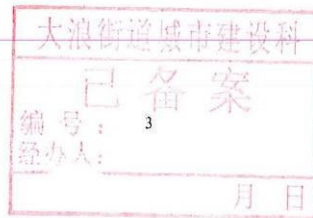 大浪街道城市建设科
已备案
编号： 3
经办人：
月 日